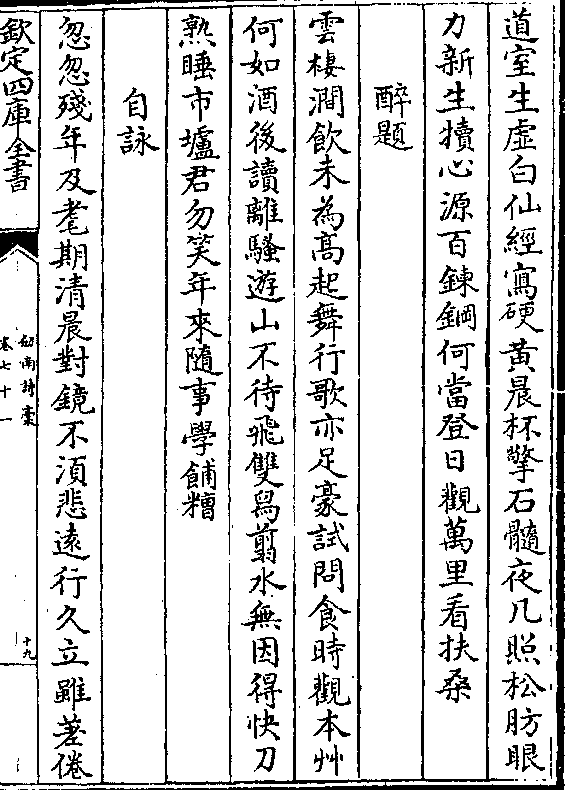 道室生虛白仙經寫硬黃晨杯擎石髓夜几照松肪眼
力新生犢心源百鍊鋼何當登日觀萬里看扶桑
醉題
雲棲澗飲未為髙起舞行歌亦足豪試問食時觀本艸
何如酒後讀離騷遊山不待飛雙舄翦水無因得快刀
熟睡市壚君勿笑年來隨事學餔糟
自詠
忽忽殘年及耄期清晨對鏡不須悲遠行久立雖差倦
欽定四庫全書
劒南詩稾
卷七十一
十九